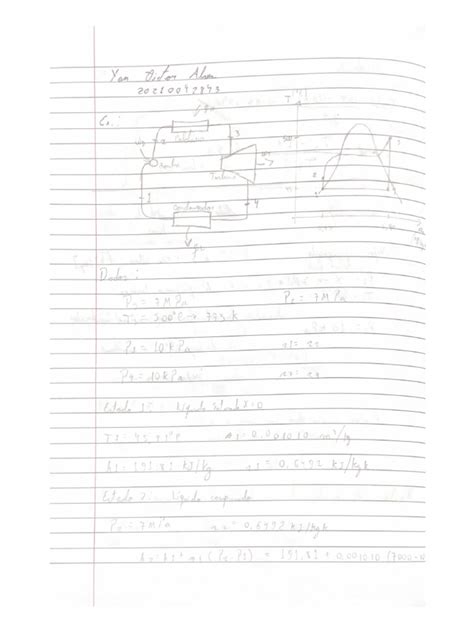 Yan Victor Alves
20210042843
Caldeira
Bomba
Turbina
Condensador
1
2
3
4
T
500
Dados:
P3 = 7MPa P2 = 7MPa
T3 = 500°C → 773 K
P1 = 10kPa s1 = s2
P4 = 10kPa s3 = s4
Estado 1: Líquido saturado X=0
T1 = 45,81°C v1 = 0,001010 m³/kg
h1 = 191,81 kJ/kg s1 = 0,6492 kJ/kgK
Estado 2: Líquido comprimido
P2 = 7MPa s2 = 0,6492 kJ/kgK
h2 = h1 + v1 (P2 - P1) = 191,81 + 0,001010 (7000 -